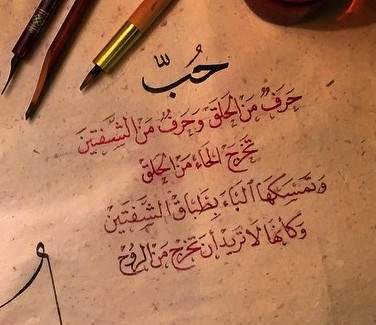 حُبّ
حَرَفٌ مَنَ الحَلقَ وَحَرفٌ مَنَ الشَّفَتَيَن
تَخرَجَ الحَاءَ مَنَ الحَلقَ
وَتَمَسَكَهَا البَاءَ بَطَبَاقَ الشَّفَتَيَن
وَكَأَنَهَا لَا تَرَيَدَ أَن تَخَرَجَ مَنَ الرُوَح
و